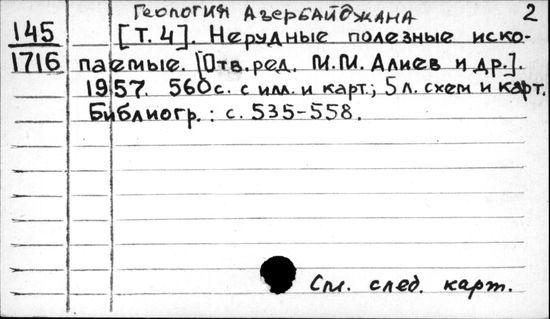 Геология Азербайджана 2
145 [Т. 4]. Нерудные полезные иско-
1716 паемые. [Отв. ред. М.М. Алиев и др.].
1957. 560 с. с илл. и карт.; 5 л. схем и карт.
Библиогр.: с. 535-558.
См. след. карт.